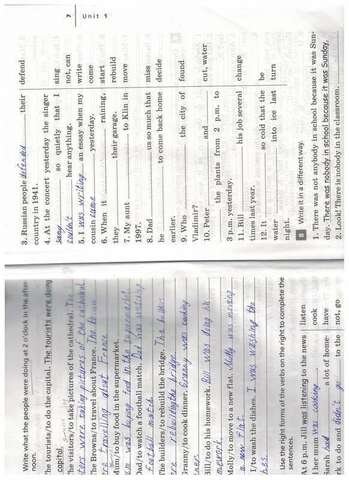 Write what the people were doing at 2 o'clock in the after-
noon.
he tourists/to do the capital. The tourists were doing
capital.
visitors/to take pictures of the cathedral.
were taking pictures of the cathedral
he Browns/to travel about France. The
travelling about France
Mum/to buy food in the supermarket.
was buying food in the supermarket
Dad/to watch a football match. Dad was watching
football match
he builders/to rebuild the bridge. The
rebuilding the bridge
ranny/to cook dinner. Granny was cooking
Bill/to do his homework. Bill was doing his
Molly/to move to a new flat. Molly was moving
a new flat
I/to wash the dishes. I was washing the
Use the right forms of the verbs on the right to complete the
sentences.
At 6 p.m. Jill was listening to the news listen
her mum was cooking cook
Sarah had a lot of home- have
rk to do and didn't go to the not, go
7 Unit 1
3. Russian people defended their defend
country in 1941.
4. At the concert yesterday the singer
sang so quietly that I sing
couldn't hear anything. not, can
5. I was writing an essay when my write
cousin came yesterday. come
6. When it raining, start
they their garage. rebuild
7. My aunt to Klin in move
1997.
8. Dad us so much that miss
he to come back home decide
earlier.
9. Who the city of found
Vladimir?
10. Peter and cut, water
the plants from 2 p.m. to
3 p.m. yesterday.
11. Bill his job several change
times last year.
12. It so cold that the be
water into ice last turn
night.
8 Write it in a different way.
1. There was not anybody in school because it was Sun-
day. There was nobody in school because it was Sunday.
2. Look! There is nobody in the classroom.